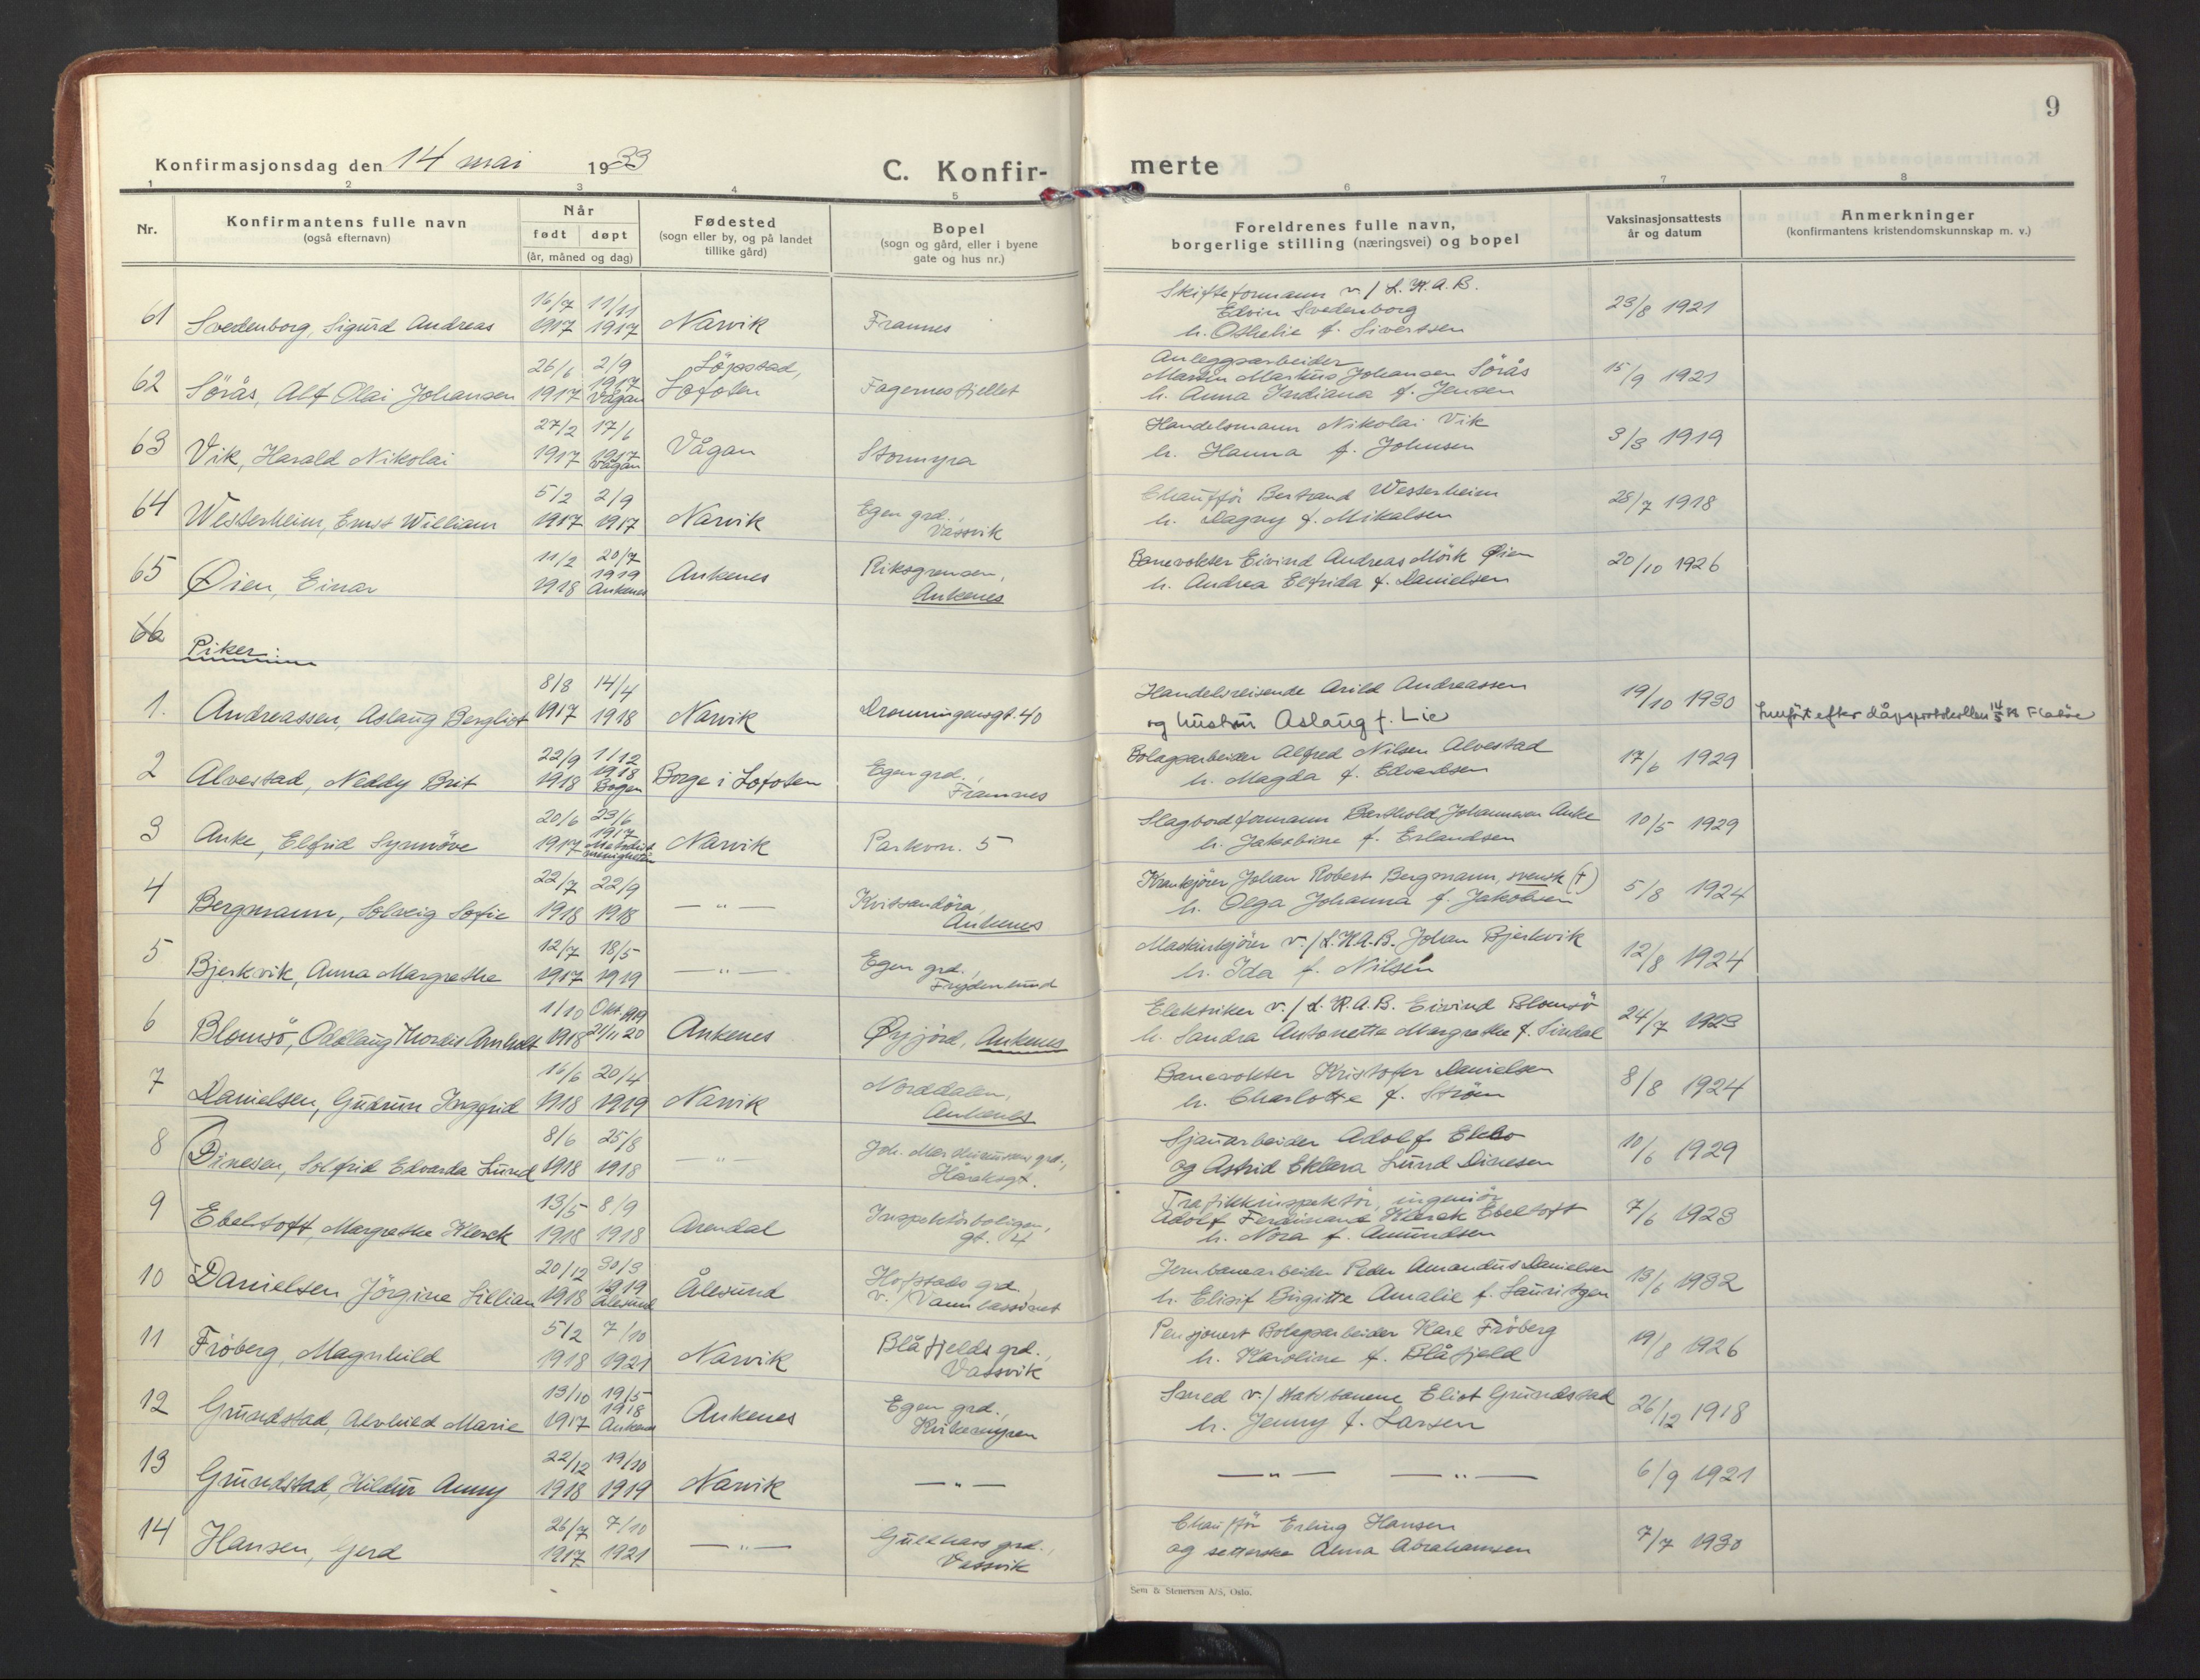 9
Konfirmasjonsdag den 14 mai 1933
C. Konfir-
merte
1 2 3 4 5 6 7 8
Nr.
Konfirmantens fulle navn
(også efternavn)
Når
født døpt
(år, måned og dag)
Fødested
(sogn eller by, og på landet
tillike gård)
Bopel
(sogn og gård, eller i byene
gate og hus nr.)
Foreldrenes fulle navn,
borgerlige stilling (næringsvei) og bopel
Vaksinasjonsattests
år og datum
Anmerkninger
(konfirmantens kristendomskunnskap m. v.)
61 16/7 11/11 Skifteformann v./L.K.A.B.
Svedenborg, Sigurd Andreas 1917 1917 Narvik Framnes Edvin Svedenborg 23/8 1921
h. Othelie f. Sivertsen
62 26/6 2/9 Löpsstad, Anleggsarbeider
Sörås, Alf Olai Johansen 1917 1917 Vågan Lofoten Fagernesfjellet Martin Markus Johansen Sörås 15/9 1921
h. Anna Indiana f. Jensen
63 27/2 17/6 Handelsmann Nikolai Vik
Vik, Harald Nikolai 1917 1917 Vågan Vågan Stormyra h. Hanna f. Johnsen 3/3 1919
64 5/2 2/9 Chaufför Bertrand Westerheim
Westerheim, Ernst William 1917 1917 Narvik Egen grd., Vassvik h. Dagny f. Mikalsen 28/7 1918
65 11/2 20/7 Banevokter Eivind Andreas Mörk Øien
Øien, Einar 1918 1919 Ankenes Ankenes Riksgrensen, Ankenes h. Andrea Elfrida f. Danielsen 20/10 1926
66
Piker:
1. 8/8 14/4 Handelsreisende Arild Andreassen
Andreassen, Aslaug Bergliot 1917 1918 Narvik Dronningensgt. 40 og hustru Aslaug f. Lie 19/10 1930 efter dåpsprotokollen
2 22/9 1/12 Bolagsarbeider Alfred Nilsen Alvestad
Alvestad, Neddy Brit 1918 1918 Bogen Borge i Lofoten Egen grd., Framnes h. Magda f. Edvardsen 17/6 1929
3 20/6 23/6 Slagbordformann Barthold Johannesen Anke
Anke, Elfrid Synnöve 1917 1917 Metodistmenigheten Narvik Parkvn. 5 h. Jakobine f. Erlandsen 10/5 1929
4 22/7 22/9 Krankjörer Johan Robert Bergmann, svensk (†)
Bergmann, Solveig Sofie 1918 1918 — " — Kvitsandöra, Ankenes h. Olga Johanna f. Jakobsen 5/8 1924
5 12/7 18/5 Maskinkjörer v./L.K.A.B. Johan Bjerkvik
Bjerkvik, Anna Margrethe 1917 1919 — " — Egen grd., Frydenlund h. Ida f. Nilsen 12/8 1924
6 1/10 Okt. 1919 Elektriker v./L.K.A.B. Eivind Blomsö
Blomsö, Oddlaug Thordis Arnholt 1918 21/11 20 Ankenes Øyjord, Ankenes h. Sandra Antonette Margrethe f. Sindal 24/7 1923
7 16/6 20/4 Banevokter Kristofer Danielsen
Danielsen, Gudrun Ingfrid 1918 1919 Narvik Norddalen, Ankenes h. Charlotte f. Ström 8/8 1924
8 8/6 25/8 Sjauarbeider Adolf Ekbo
Dinesen, Solfrid Edvarda Lund 1918 1918 — " — Joh. Markussens grd., Håreksgt. og Astrid Eklara Lund Dinesen 10/6 1929
9 13/5 8/9 Trafikkinspektör, ingeniör
Ebeltoft, Margrethe Klerck 1918 1918 Arendal Inspektörboligen, gt. 4 Adolf Ferdinand Klerck Ebeltoft 7/6 1923
h. Nora f. Amundsen
10 20/12 30/3 Jernbanearbeider Peder Amandus Danielsen
Danielsen Jörgine Lillian 1918 1919 Ålesund Ålesund Hofstads grd. v./Vannbassinet h. Elisif Birgitte Amalie f. Lauritzen 13/6 1932
11 5/2 7/10 Pensjonert Bolagsarbeider Karl Fröberg
Fröberg, Magnhild 1918 1921 Narvik Blåfjelds grd., Vassvik h. Karoline f. Blåfjeld 19/8 1926
12 13/10 19/5 Smed v./Statsbanene Eliot Grundstad
Grundstad, Alvhild Marie 1917 1918 Ankenes Ankenes Egen grd., h. Jenny f. Larsen 26/12 1918
13 22/12 19/10
Grundstad, Hildur Anny 1918 1919 Narvik — " — — " — — " — 6/9 1921
14 26/7 7/10 Chaufför Erling Hansen
Hansen, Gerd 1917 1921 — " — Gullhavs grd., Vassvik og setterske Alma Abrahamsen 7/7 1930
Sem & Stenersen A/S, Oslo.